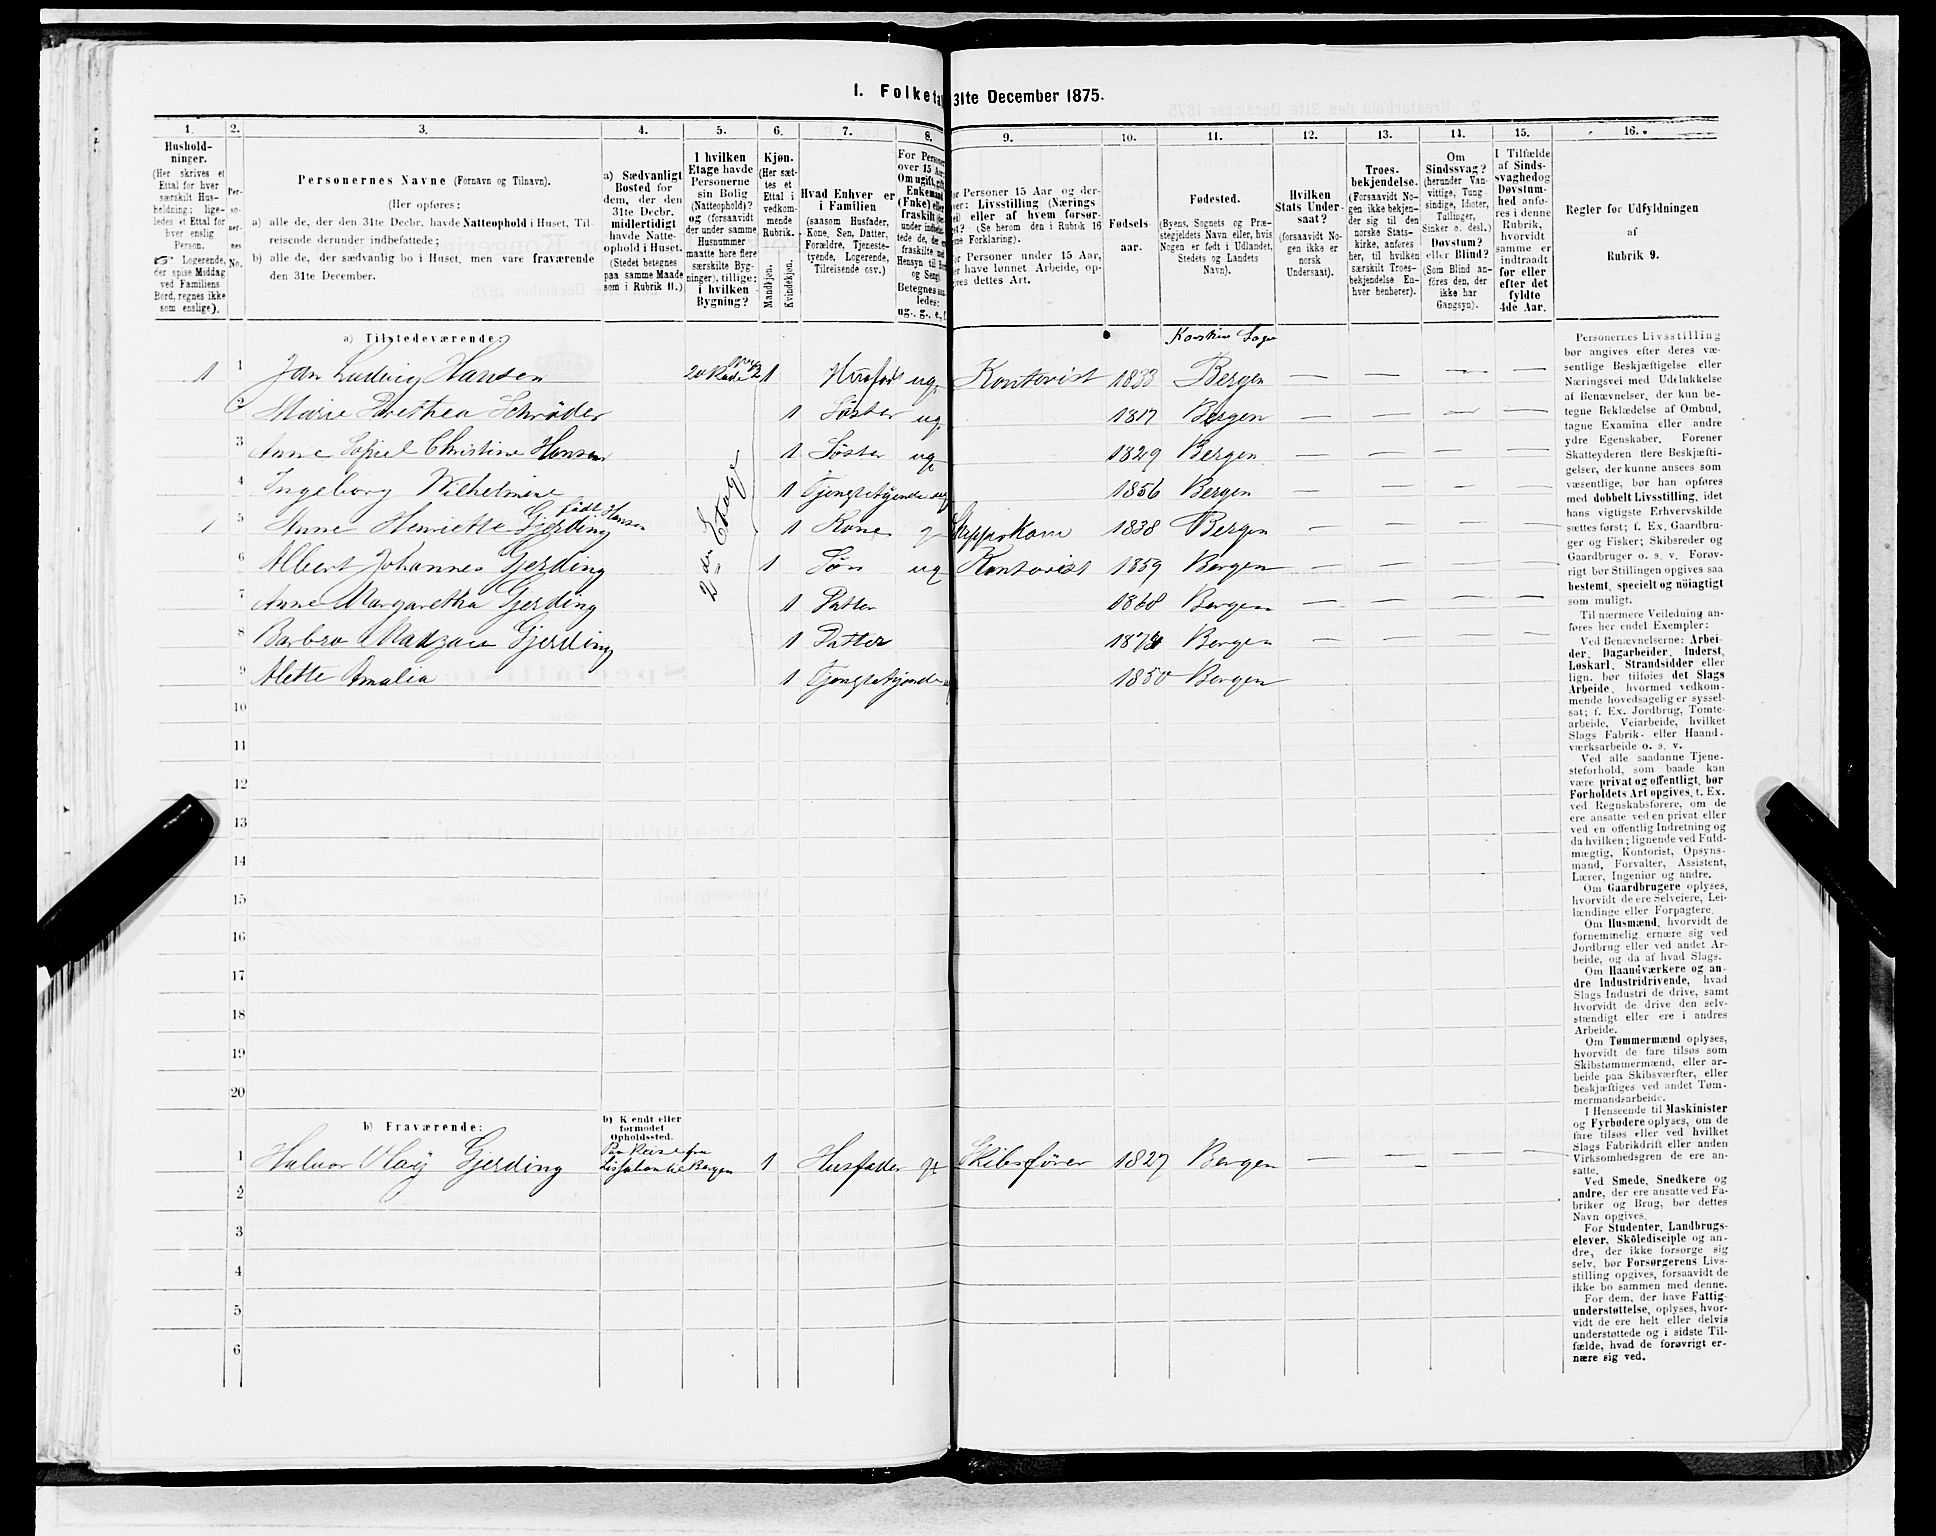 1. Folketal 31te December 1875.
1.
2.
3.
4.
5.
6.
7.
8.
9.
10.
11.
12.
13.
14.
15.
16.
Hushold-
ninger.
(Her skrives et
Ettal for hver
særskilt Hus-
holdning; lige-
ledes et Ettal for
hver enslig
Person.
☞ Logerende,
der spise Middag
ved Familiens
Bord, regnes ikke
som enslige).
Per-
so-
ner-
nes
No.
Personernes Navne (Fornavn og Tilnavn).
(Her opføres:
a) alle de, der den 31te Decbr. havde Natteophold i Huset, Til-
reisende derunder indbefattede;
b) alle de, der sædvanlig bo i Huset, men vare fraværende
den 31te December.
a) Sædvanligt
Bosted for
dem, der den
31te Decbr.
midlertidigt
havde Natte-
ophold i Huset.
(Stedet betegnes
paa samme Maade
som i Rubrik 11.)
I hvilken
Etage havde
Personerne
sin Bolig
(Natteophold)?
og (forsaavidt
der under samme
Husnummer
maatte høre flere
særskilte Byg-
ninger), tillige:
i hvilken
Bygning?
Kjøn.
(Her sæt-
tes et
Ettal i
vedkom-
mende
Rubrik.
Mandkjøn.
Kvindekjøn.
Hvad Enhver er
i Familien
(saasom Husfader,
Kone, Søn, Datter,
Forældre, Tjeneste-
tyende, Logerende,
Tilreisende osv.)
For Persone
over 15 Aar
Om ugift, gift
Enkemand
(Enke) elle
fraskilt
Betegnes saa-
ledes:
ug., g., e, f.
or Personer 15 Aar og der-
ver: Livsstilling (Nærings
ei) eller af hvem forsør-
et? - (Se herom den i Rubrik 16
ne Forklaring).
or Personer under 15 Aar,
er have lønnet Arbeide, op-
gives dettes Art.
Fødsels-
aar.
Fødested.
(Byens, Sognets og Præ-
stegjeldets Navn eller, hvis
Nogen er født i Udlandet,
Stedets og Landets
Navn).
Hvilken
Stats Under-
saat?
(forsaavidt No-
gen ikke er
norsk
Undersaat).
Troes-
bekjendelse.
(Forsaavidt No-
gen ikke bekjen-
der sig til den
norske Stats-
kirke, anføres
her, til hvilken
særskilt Troes-
bekjendelse En-
hver henhører).
Om
Sindssvag?
(herunder Van-
vittige, Tung
sindige, Idioter,
Tullinger,
Sinker o. desl.)
Døvstum?
eller Blind?
(Som Blind an-
föres den, der
ikke har
Gangsyn).
I Tilfælde
af Sinds-
svaghed og
Døvstum-
hed anfø-
res i denne
Rubrik,
hvorvidt
samme er
indtraadt
før eller
efter det
fyldte
4de Aar.
Regler for Udfyldningen
af
Rubrik 9.
a) Tilstedeværende:
1 1 Jan Ludvig Hansen 1 Husfad ug. Kontorist 1833 Bergen — — — —
2 Marie Dorethea Schrøder 1 Søster ug. 1817 Bergen — — — —
3 Anne Christine Hansen 1 Søster ug. 1829 Bergen — — — —
4 Ingeborg Wilhelmine 1 Tjenestetyende ug 1856 Bergen — — — —
født Hansen
1 5 Anne Henriette Gjerding 1 Kone g 1838 Bergen — — — —
6 Albert Johannes Gjerding 1 Søn ug Kontorist 1859 Bergen — — — —
7 Anne Margaretha Gjerding 1 Datter 1868 Bergen — — — —
8 Barbra Gjerding 1 Datter Bergen — — — —
9 Alette Amalia 1 Tjenestetyende 1850 Bergen
2den Etage
10
11
12
13
14
15
16
17
18
19
20
b) Fraværende:
b) Kendt eller
formodet
Opholdssted.
Paa Reise fra
1 Halvor Gjerding til Bergen 1 Husfader g. Skibsfører 1827 Bergen — — — —
2
3
4
5
6
Personernes Livsstilling
bør angives efter deres væ-
sentlige Beskjæftigelse eller
Næringsvei med Udelukkelse
af Benævnelser, der kun be-
tegne Beklædelse af Ombud,
tagne Examina eller andre
ydre Egenskaber. Forener
Skatteyderen flere Beskjæfti-
gelser, der kunne ansees som
væsentlige, bør han opføres
med dobbelt Livsstilling, idet
hans vigtigste Erhvervskilde
sættes først; f. Ex. Gaardbru-
ger og Fisker; Skibsreder og
Gaardbruger o. s. v. Forøv-
rigt bør Stillingen opgives saa
bestemt, specielt og nöiagtigt
som muligt.
Til nærmere Veiledning an-
føres her endel Exempler:
Ved Benævnelserne: Arbei-
der, Dagarbeider, Inderst,
Løskarl, Strandsidder eller
lign. bør tilføies det Slags
Arbeide, hvormed vedkom-
mende hovedsagelig er syssel-
sat; f. Ex. Jordbrug, Tomte-
arbeide, Veiarbeide, hvilket
Slags Fabrik- eller Haand-
værksarbeide o. s. v.
Ved alle saadanne Tjene-
steforhold, som baade kan
være privat og offentligt, bør
Forholdets Art opgives, t. Ex.
ved Regnskabsførere, om de
ere ansatte ved en privat eller
ved en offentlig Indretning og
da hvilken; lignende ved Fuld-
mægtig, Kontorist, Opsyns-
mand, Forvalter, Assistent,
Lærer, Ingeniør og andre.
Om Gaardbrugere oplyses,
hvorvidt de ere Selveiere, Lei-
lændinge eller Forpagtere.
Om Husmænd, hvorvidt de
fornemmelig ernære sig ved
Jordbrug eller ved andet Ar-
beide, og da af hvad Slags.
Om Haandværkere og an-
dre Industridrivende, hvad
Slags Industri de drive, samt
hvorvidt de drive den selv-
stændigt eller ere i andres
Arbeide.
Om Tømmermænd oplyses,
hvorvidt de fare tilsøs som
Skibstømmermænd, eller ar-
beide paa Skibsværfter, eller
beskjæftiges ved andet Tøm-
mermandsarbeide.
I Henseende til Maskinister
og Fyrbødere oplyses, om de
fare tilsøs eller ved hvilket
Slags Fabrikdrift eller anden
Virksomhedsgren de ere an-
satte.
Ved Smede, Snedkere og
andre, der ere ansatte ved Fa-
briker og Brug, bør dettes
Navn opgives.
For Studenter, Landbrugs-
elever, Skoledisciple og an-
dre, der ikke forsørge sig
selv, bør Forsørgerens Livs-
stilling opgives, forsaavidt de
ikke bo sammen med denne.
For dem, der have Fattig-
understøttelse, oplyses, hvor-
vidt de ere helt eller delvis
understøttede og i sidste Til-
fælde, hvad de forøvrigt er-
nære sig ved.